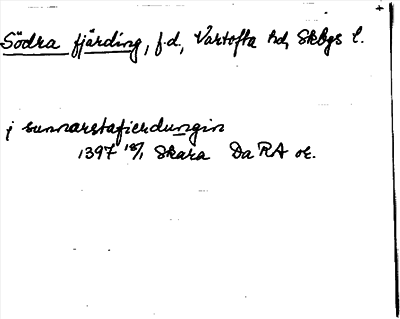 Södra fjärding, f.d., Vartofta hd, Skbgs l.
j sunnarstafierdungin
1397 18/1 Skara Da RA or.